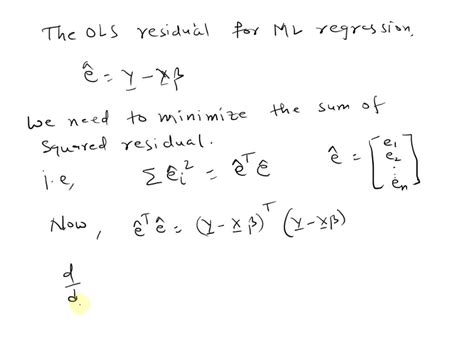 The OLS residual for ML regression.
ê = y - xβ
We need to minimize the sum of
squared residual.
i.e, Σ êᵢ² = êᵀ ê ê = [e₁ e₂ ⋮ eₙ]
Now, êᵀ ê = (y - xβ)ᵀ (y - xβ)
d/d